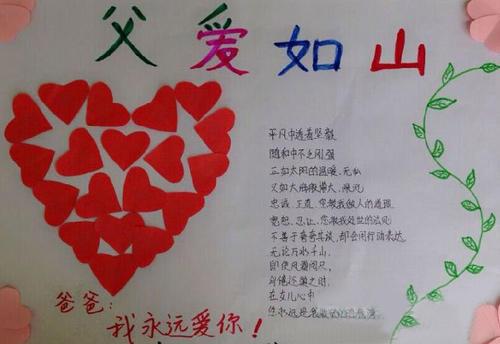 父爱如山
平凡中透着坚毅
随和中不乏刚强
正如太阳的温暖、无私
又如大海般博大、深沉
忠诚、正直,您教我做人的道理
宽恕、忍让,您教我处世的法则
不善于夸夸其谈,却会用行动表达
无论万水千山,
即使风霜雨尺,
在女儿心中
您永远是我
爸爸:
我永远爱你!